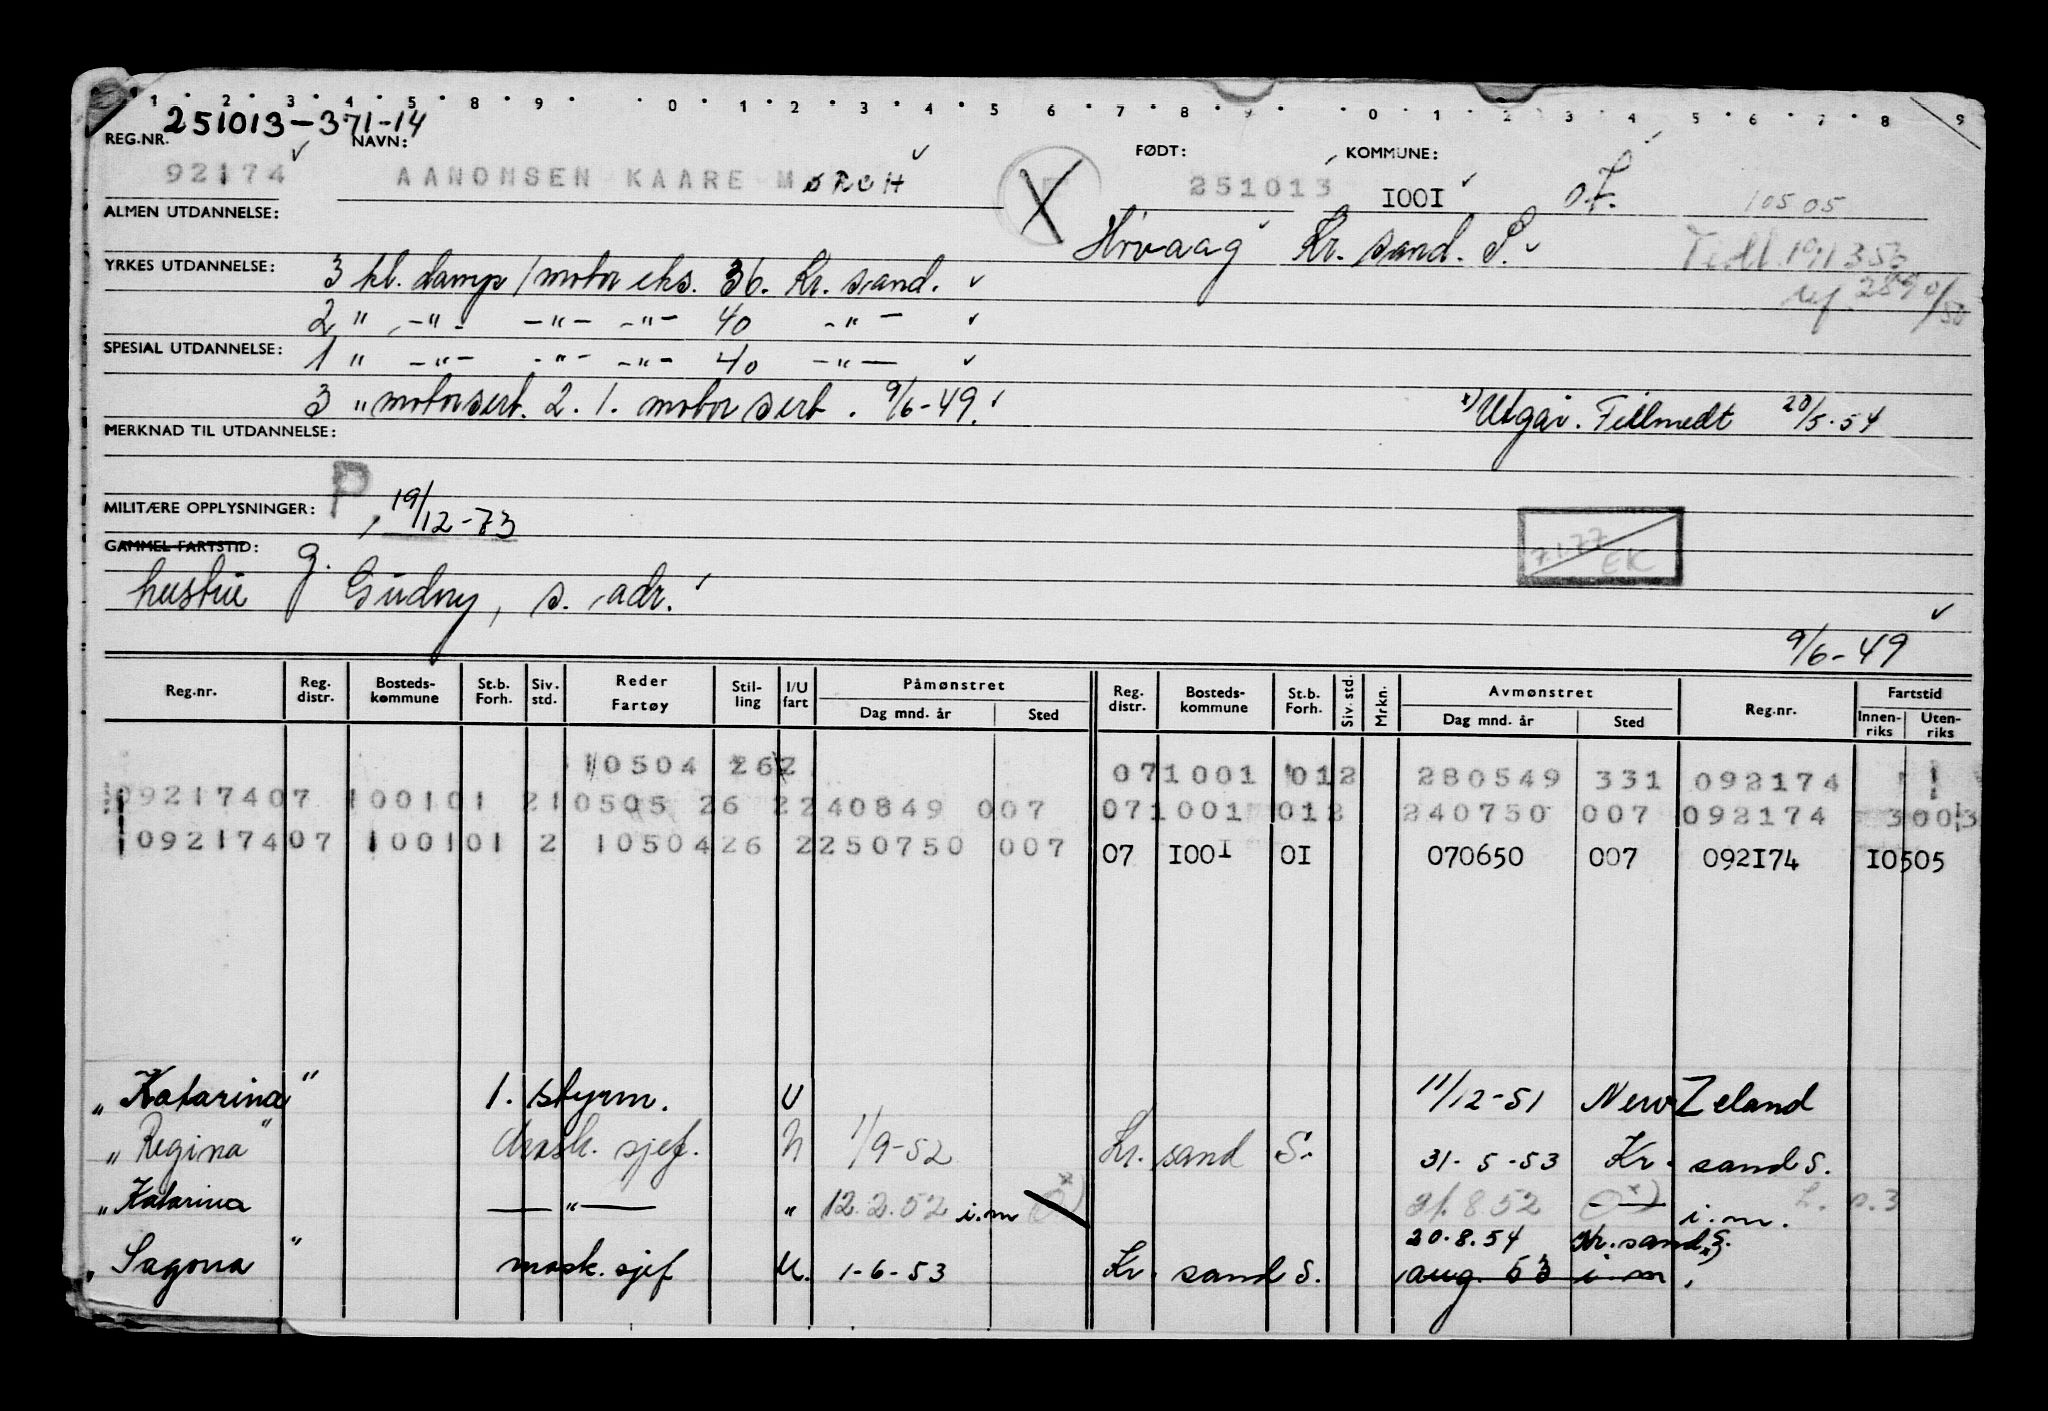 1 2 3 4 5 8 9 0 1 2 3 4 5 6 7 8 9 0 1 2 3 4 5 6 7 8 9
251013-371-14
REG.NR. NAVN: FØDT: KOMMUNE:
92174 AANONSEN KAARE MØRCH 251013 1001 105 05
ALMEN UTDANNELSE:
Kr. sand. S.
YRKES UTDANNELSE: 3 kl. damp/motor eks. 36. Kr. sand.
2 " -"- -"- -"- 40 -"-
SPESIAL UTDANNELSE: 1 " -"- -"- -"- 40 -"-
3 " motorsert. 2. 1. motor sert. 9/6-49.
x) Utgår. Tillmedt 20/5-54
MERKNAD TIL UTDANNELSE:
MILITÆRE OPPLYSNINGER: P, 19/12-73
GAMMEL FARTSTID:
7177 EK
hustru g. Gudny, s. adr.
9/6-49
Reg.nr. Reg. distr. Bosteds-kommune St.b. Forh. Siv. std. Reder Fartøy Stil-ling I/U fart Påmønstret Dag mnd. år Sted Reg. distr. Bosteds-kommune St.b. Forh. Siv. std. Mrkn. Avmønstret Dag mnd. år Sted Reg.nr. Fartstid Innen-riks Uten-riks
10504 262 071001 012 280549 331 092174
09217407 100101 210505 26 2240849 007 071001 012 240750 007 092174 3003
09217407 100101 2 1050426 2250750 007 07 1001 01 070650 007 092174 10505
"Katarina" 1. styrm. U 11/12-51 New Zeland
"Regina" mask. sjef. 1/9-52 Kr. sand S. 31-5-53 Kr. sand S.
"Katarina -"- " 12.2.52 i.m 8.52 i.m.
20.8.54 Kr. sand S.
"Sagona" mask. sjef U. 1-6-53 Kr. sand S. aug. 53 i m.